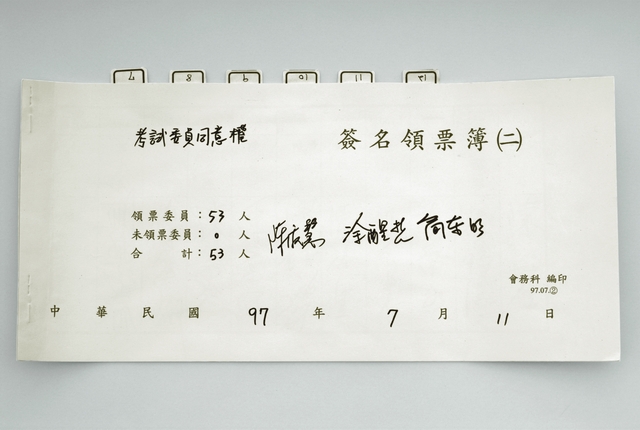 7 8 9 10 11 12
考試委員同意權
簽名領票簿(二)
領票委員：53人
未領票委員：0人
合計：53人
會務科 編印
97.07.②
中華民國97年7月11日